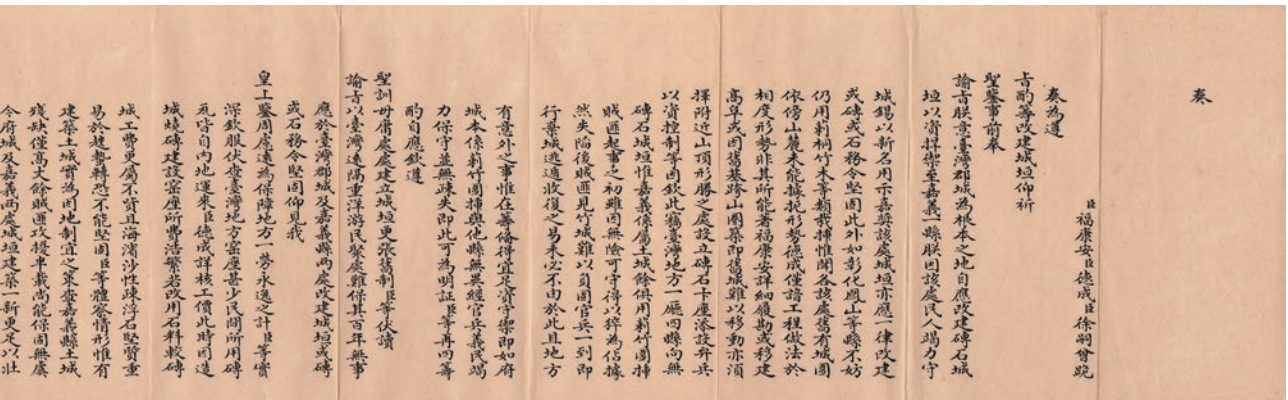 奏
臣福康安臣德成臣徐嗣曾跪
奏為遵
旨酌籌改建城垣仰祈
聖鑒事前奉
諭旨朕意臺灣郡城為根本之地自應改建磚石城
垣以資捍禦至嘉義一縣朕因該處民人竭力守
城錫以新名用示嘉獎該處城垣亦應一律改建
或磚或石務令堅固此外如彰化鳳山等縣不妨
仍用莿桐竹木等類栽插惟聞各該處舊有城圍
依傍山麓未能據扼形勢德成僅諳工程做法於
相度形勢非其所能著福康安詳細履勘或移建
高阜或因舊基跨山圍築即舊城難以移動亦須
擇附近山頂形勝之處設立磚石卡座添設弁兵
以資控制等因欽此竊臺灣地方一廳四縣向無
磚石城垣惟嘉義係屬土城餘俱用莿竹圍插
賊匪起事之初雖因無險可守得以猝為佔據
然失陷後賊匪見竹城難以負固官兵一到即
行棄城逃遁收復之易未必不由於此且地方
有意外之事惟在籌備得宜足資守禦即如府
城本係莿竹圍插與他縣無異經官兵義民竭
力保守並無疎失即此可為明証臣等再四籌
酌自應欽遵
聖訓毋庸處處建立城垣更張舊制臣等伏讀
諭旨以臺灣遠隔重洋游民聚處難保其百年無事
應於臺灣郡城及嘉義縣兩處改建城垣或磚
或石務令堅固仰見我
皇上鑒周慮遠為保障地方一勞永逸之計臣等實
深欽服伏查臺灣地方窑座甚少民間所用磚
瓦皆自內地運來臣德成詳核工價此時因造
城燒磚建設窑座所費浩繁若改用石料較磚
城工費更屬不貲且海濱沙性疎浮石堅質重
易於趨勢轉恐不能堅固臣等體察情形惟有
建築土城實為因地制宜之策查嘉義縣土城
殘缺僅高丈餘賊匪攻擾半載尚能保固無虞
令府城及嘉義兩處城垣建築一新更足以壯